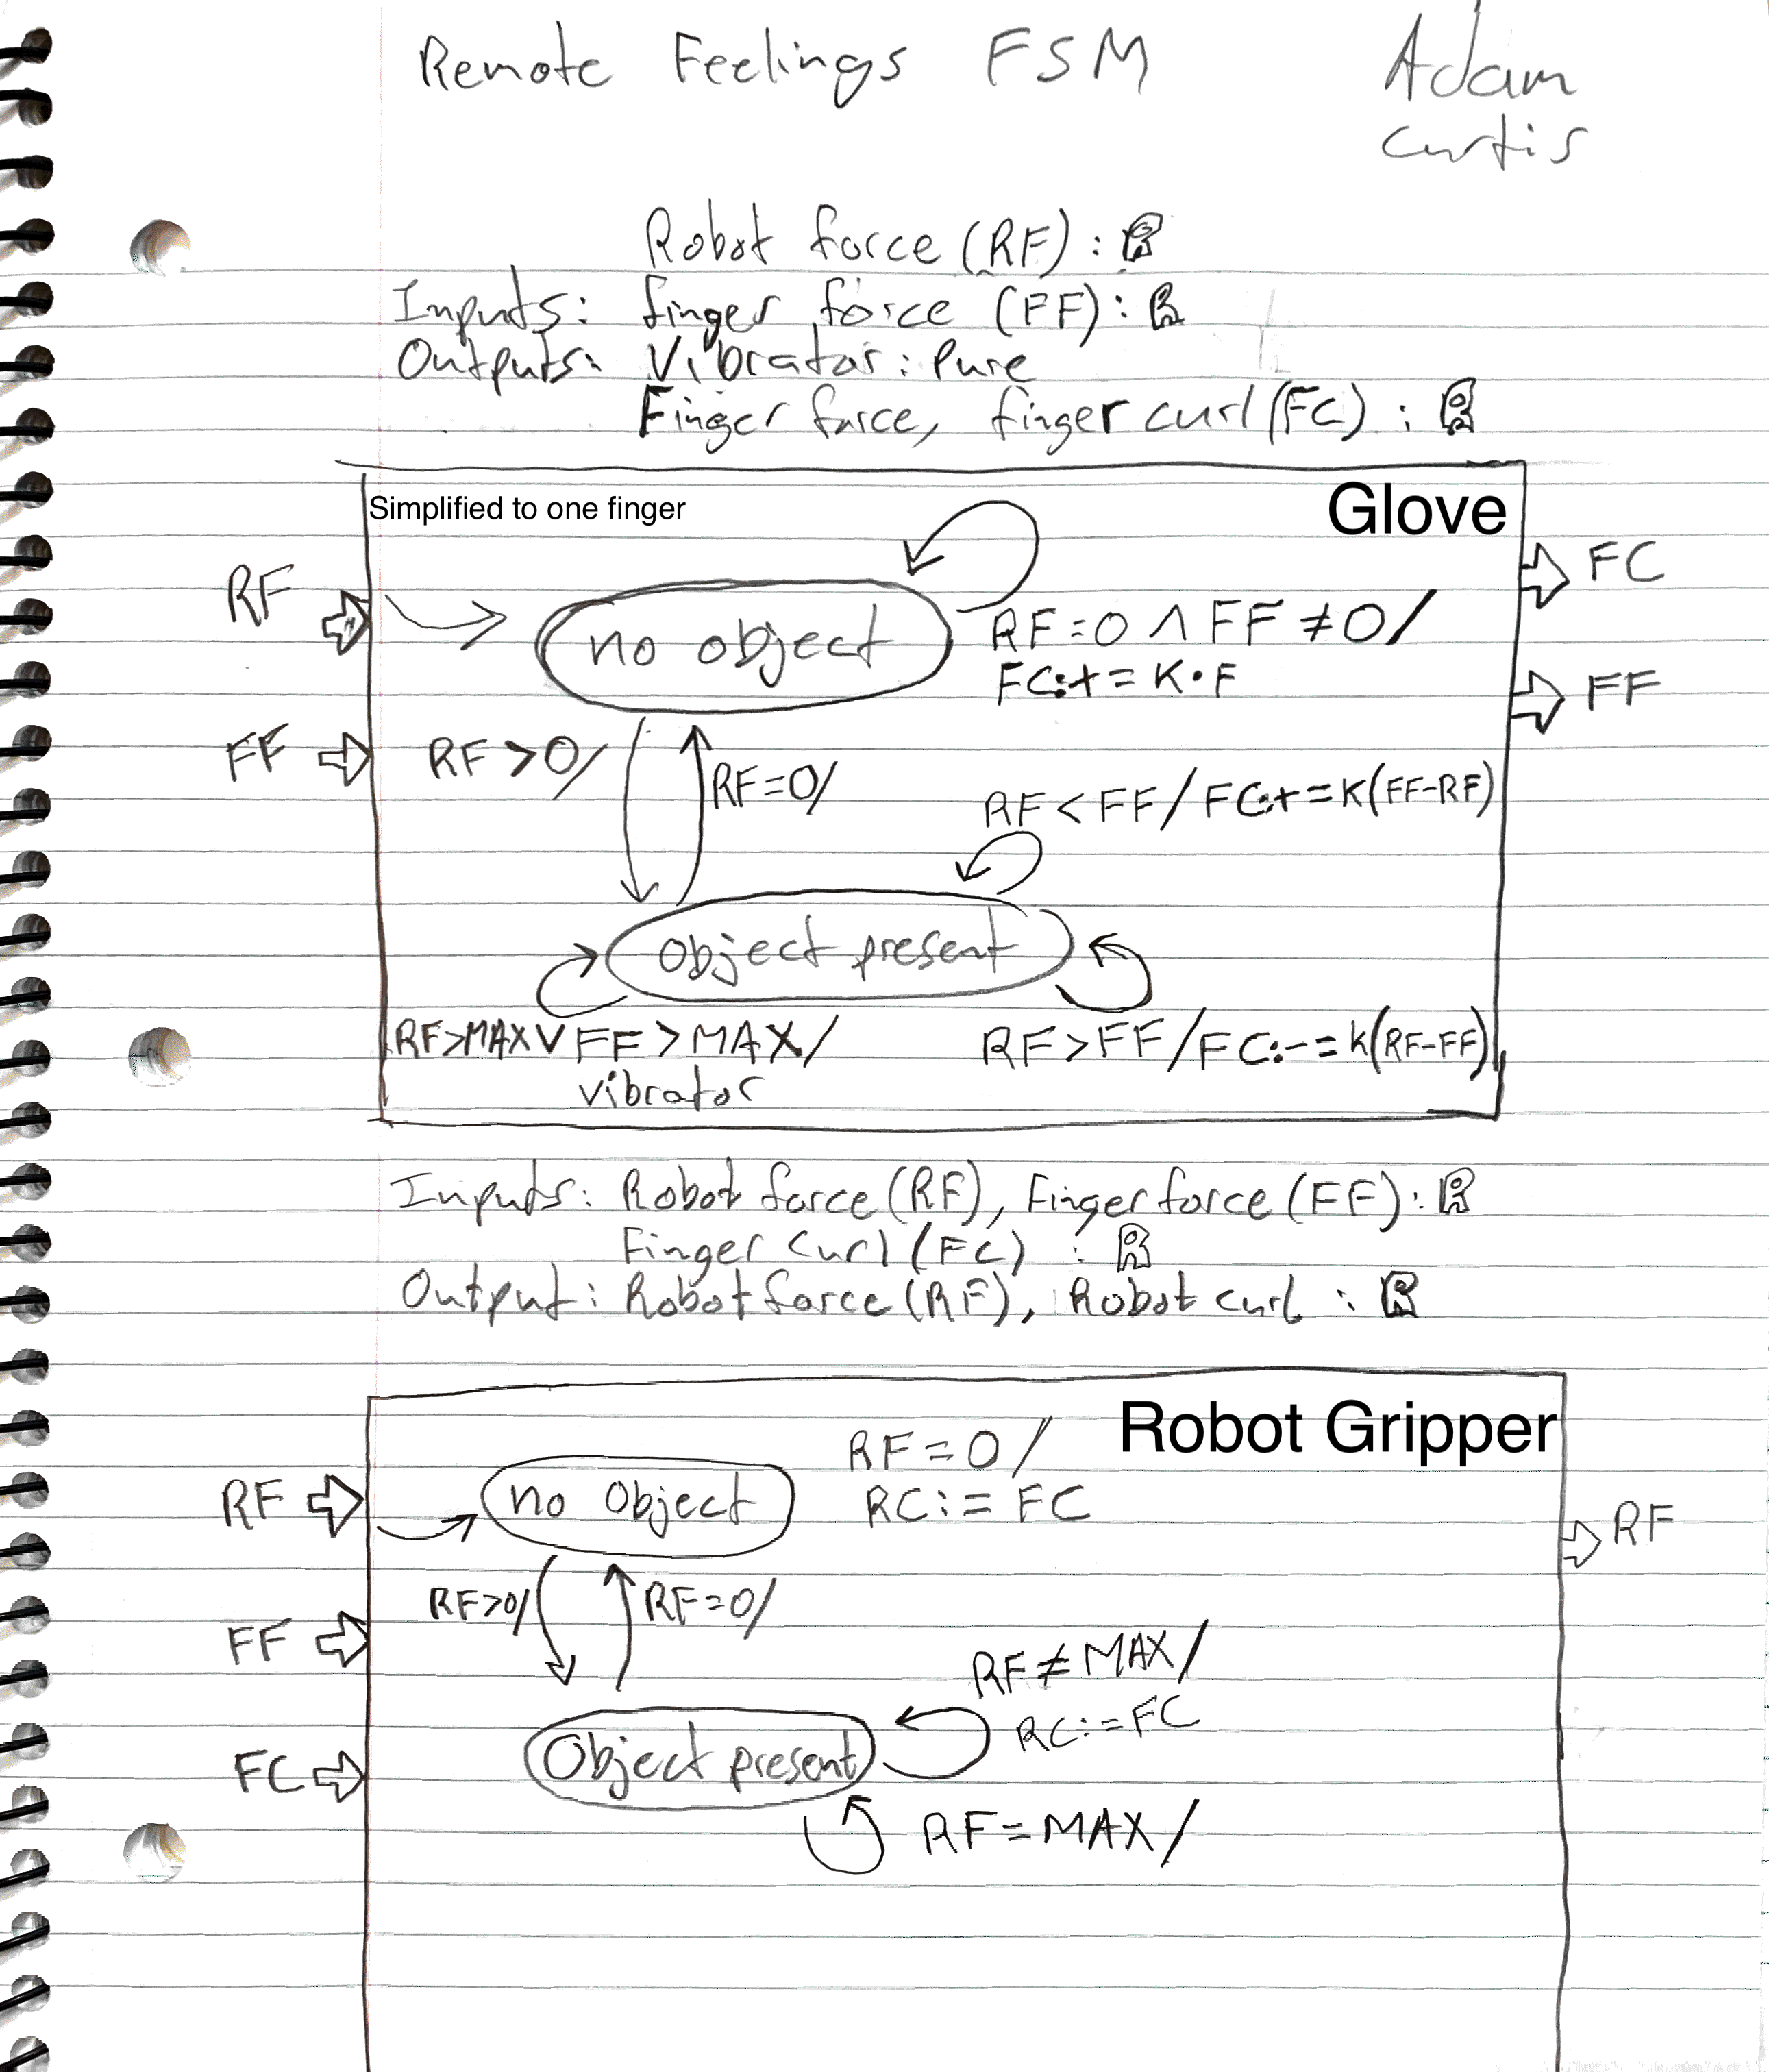 Remote Feelings FSM Adam
Curtis
Robot force (RF) : ℝ
Inputs: finger force (FF) : ℝ
Outputs: Vibrator : Pure
Finger force, finger curl (FC) : ℝ
Simplified to one finger
Glove
RF
FF
FC
FF
no object
RF=0 ∧ FF ≠ 0/
FC:+= K·F
RF > 0/
RF=0/
RF < FF / FC:+=K(FF-RF)
Object present
RF>MAX ∨ FF > MAX/
vibrator
RF > FF / FC:-= K(RF-FF)
Inputs: Robot force (RF), Finger force (FF): ℝ
Finger Curl (FC) : ℝ
Output: Robot force (RF), Robot curl : ℝ
Robot Gripper
RF
FF
FC
RF
no Object
RF = 0 /
RC := FC
RF>0/
RF=0/
RF ≠ MAX /
RC:=FC
Object present
RF = MAX /